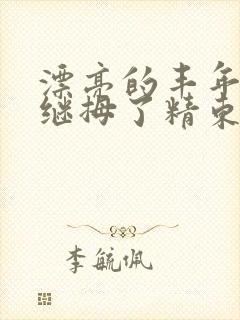 漂亮的丰年
继拇了精
李毓佩